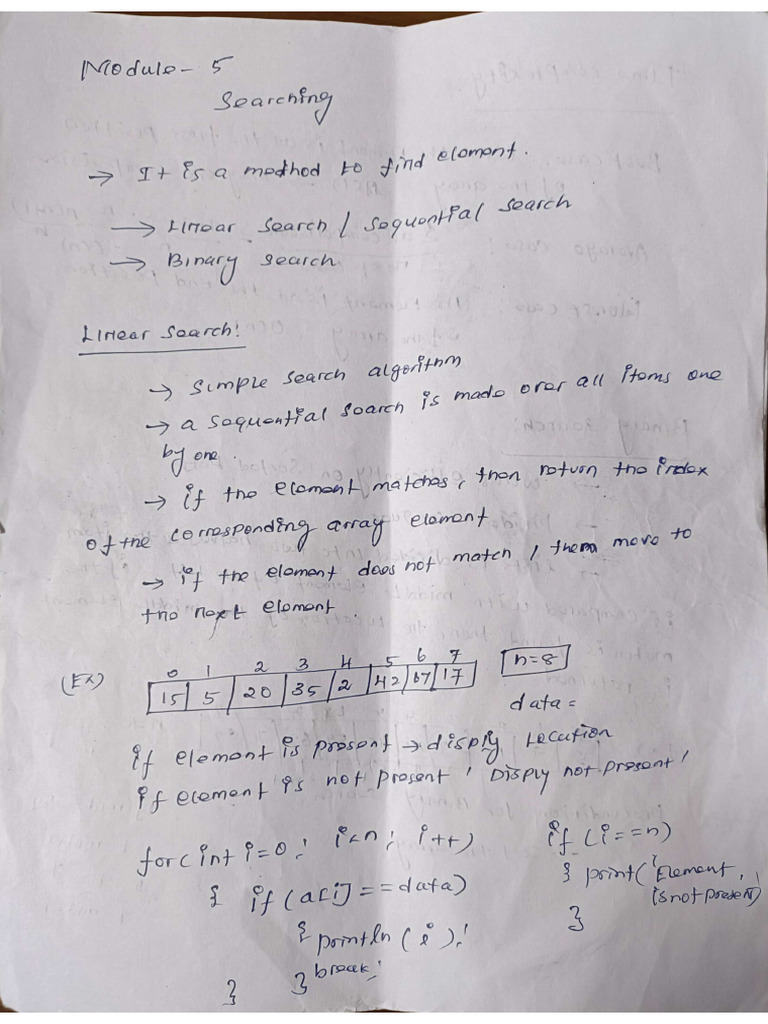 Module - 5
Searching
→ It is a method to find element.
→ Linear search / Sequential search
→ Binary search
Linear Search:
→ simple search algorithm
→ a sequential search is made over all items one
by one.
→ if the element matches, then return the index
of the corresponding array element
→ if the element does not match, then move to
the next element.
(Ex) 0 1 2 3 4 5 6 7
15 5 20 35 2 42 67 17 n=8
data =
if element is present → disply Location
if element is not present 'Disply not present'
for(int i=0; i<n; i++) if (i==n)
{ if (a[i] == data) { print('Element
{ println(i); is not present')
break; }
} }